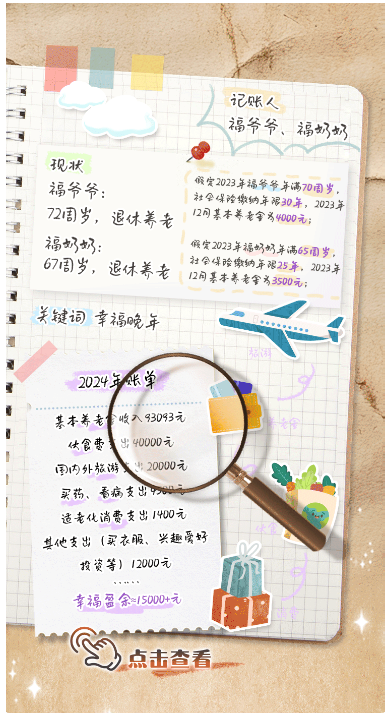 记账人
福爷爷、福奶奶
现状
福爷爷：
72周岁，退休养老
福奶奶：
67周岁，退休养老
假定2023年福爷爷年满70周岁，
社会保险缴纳年限30年，2023年
12月基本养老金为4000元；
假定2023年福奶奶年满65周岁，
社会保险缴纳年限25年，2023年
12月基本养老金为3500元；
关键词 幸福晚年
旅游
2024年账单
基本养老金收入93093元
伙食费支出40000元
国内外旅游支出20000元
买药、看病支出4500元
适老化消费支出1400元
其他支出（买衣服、兴趣爱好
投资等）12000元
……
幸福盈余=15000+元
点击查看